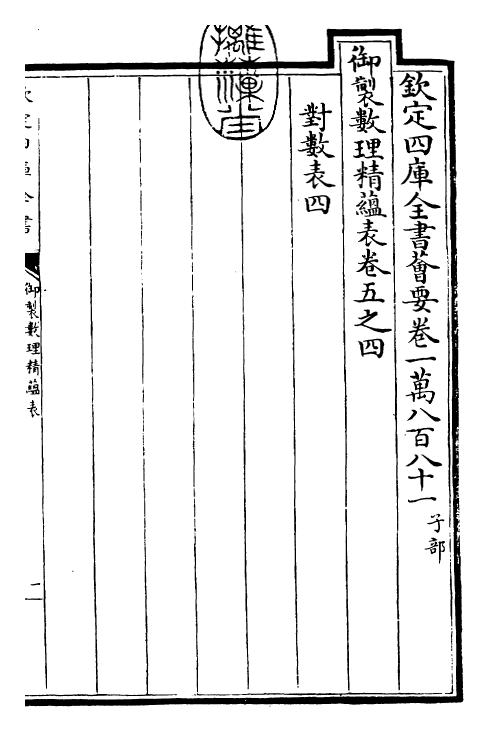 欽定四庫全書薈要卷一萬八百八十一 子部
御製數理精蘊表卷五之四
對數表四
欽定四庫全書
御製數理精蘊表